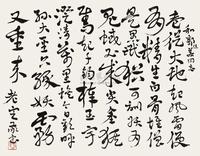 和郭沫若同志
一从大地起風雷便
有精生白骨堆僧
是愚氓犹可訓妖为
鬼蜮必成災金猴
奮起千钧棒玉宇
澄清萬里埃今日歡呼
孙大圣只缘妖霧
又重来